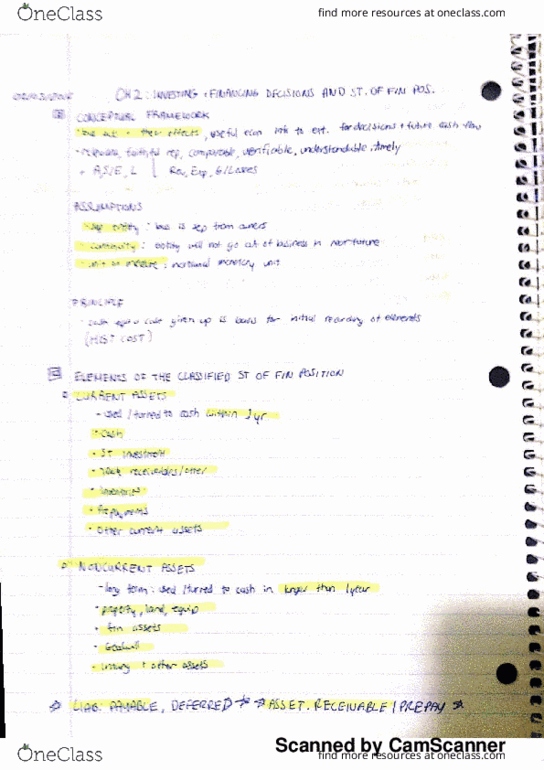 OneClass
find more resources at oneclass.com
CH 2: INVESTING + FINANCING DECISIONS AND ST. OF FIN POS.
CONCEPTUAL FRAMEWORK
their effects, useful econ info to ext. for decisions + future cash flow
relevance, faithful rep, comparable, verifiable, understandable, timely
+ A, S/E, L Rev, Exp, G/Losses
ASSUMPTIONS
sep entity: bus is sep from owners
continuity: entity will not go out of business in near future
unit of measure: national monetary unit
PRINCIPLE
cash equiv cost given up is basis for initial recording of elements
(HIST COST)
ELEMENTS OF THE CLASSIFIED ST OF FIN POSITION
CURRENT ASSETS
- used / turned to cash within 1 yr
• cash
• ST investment
• receivables/other
• inventories
• Prepayments
• Other current assets
NONCURRENT ASSETS
- long term: used / turned to cash in longer than 1 year
• property, land, equip
• fin assets
• Goodwill
• + other assets
LIAB: PAYABLE, DEFERRED → ASSET: RECEIVABLE / PREPAY
Scanned by CamScanner
OneClass
find more resources at oneclass.com